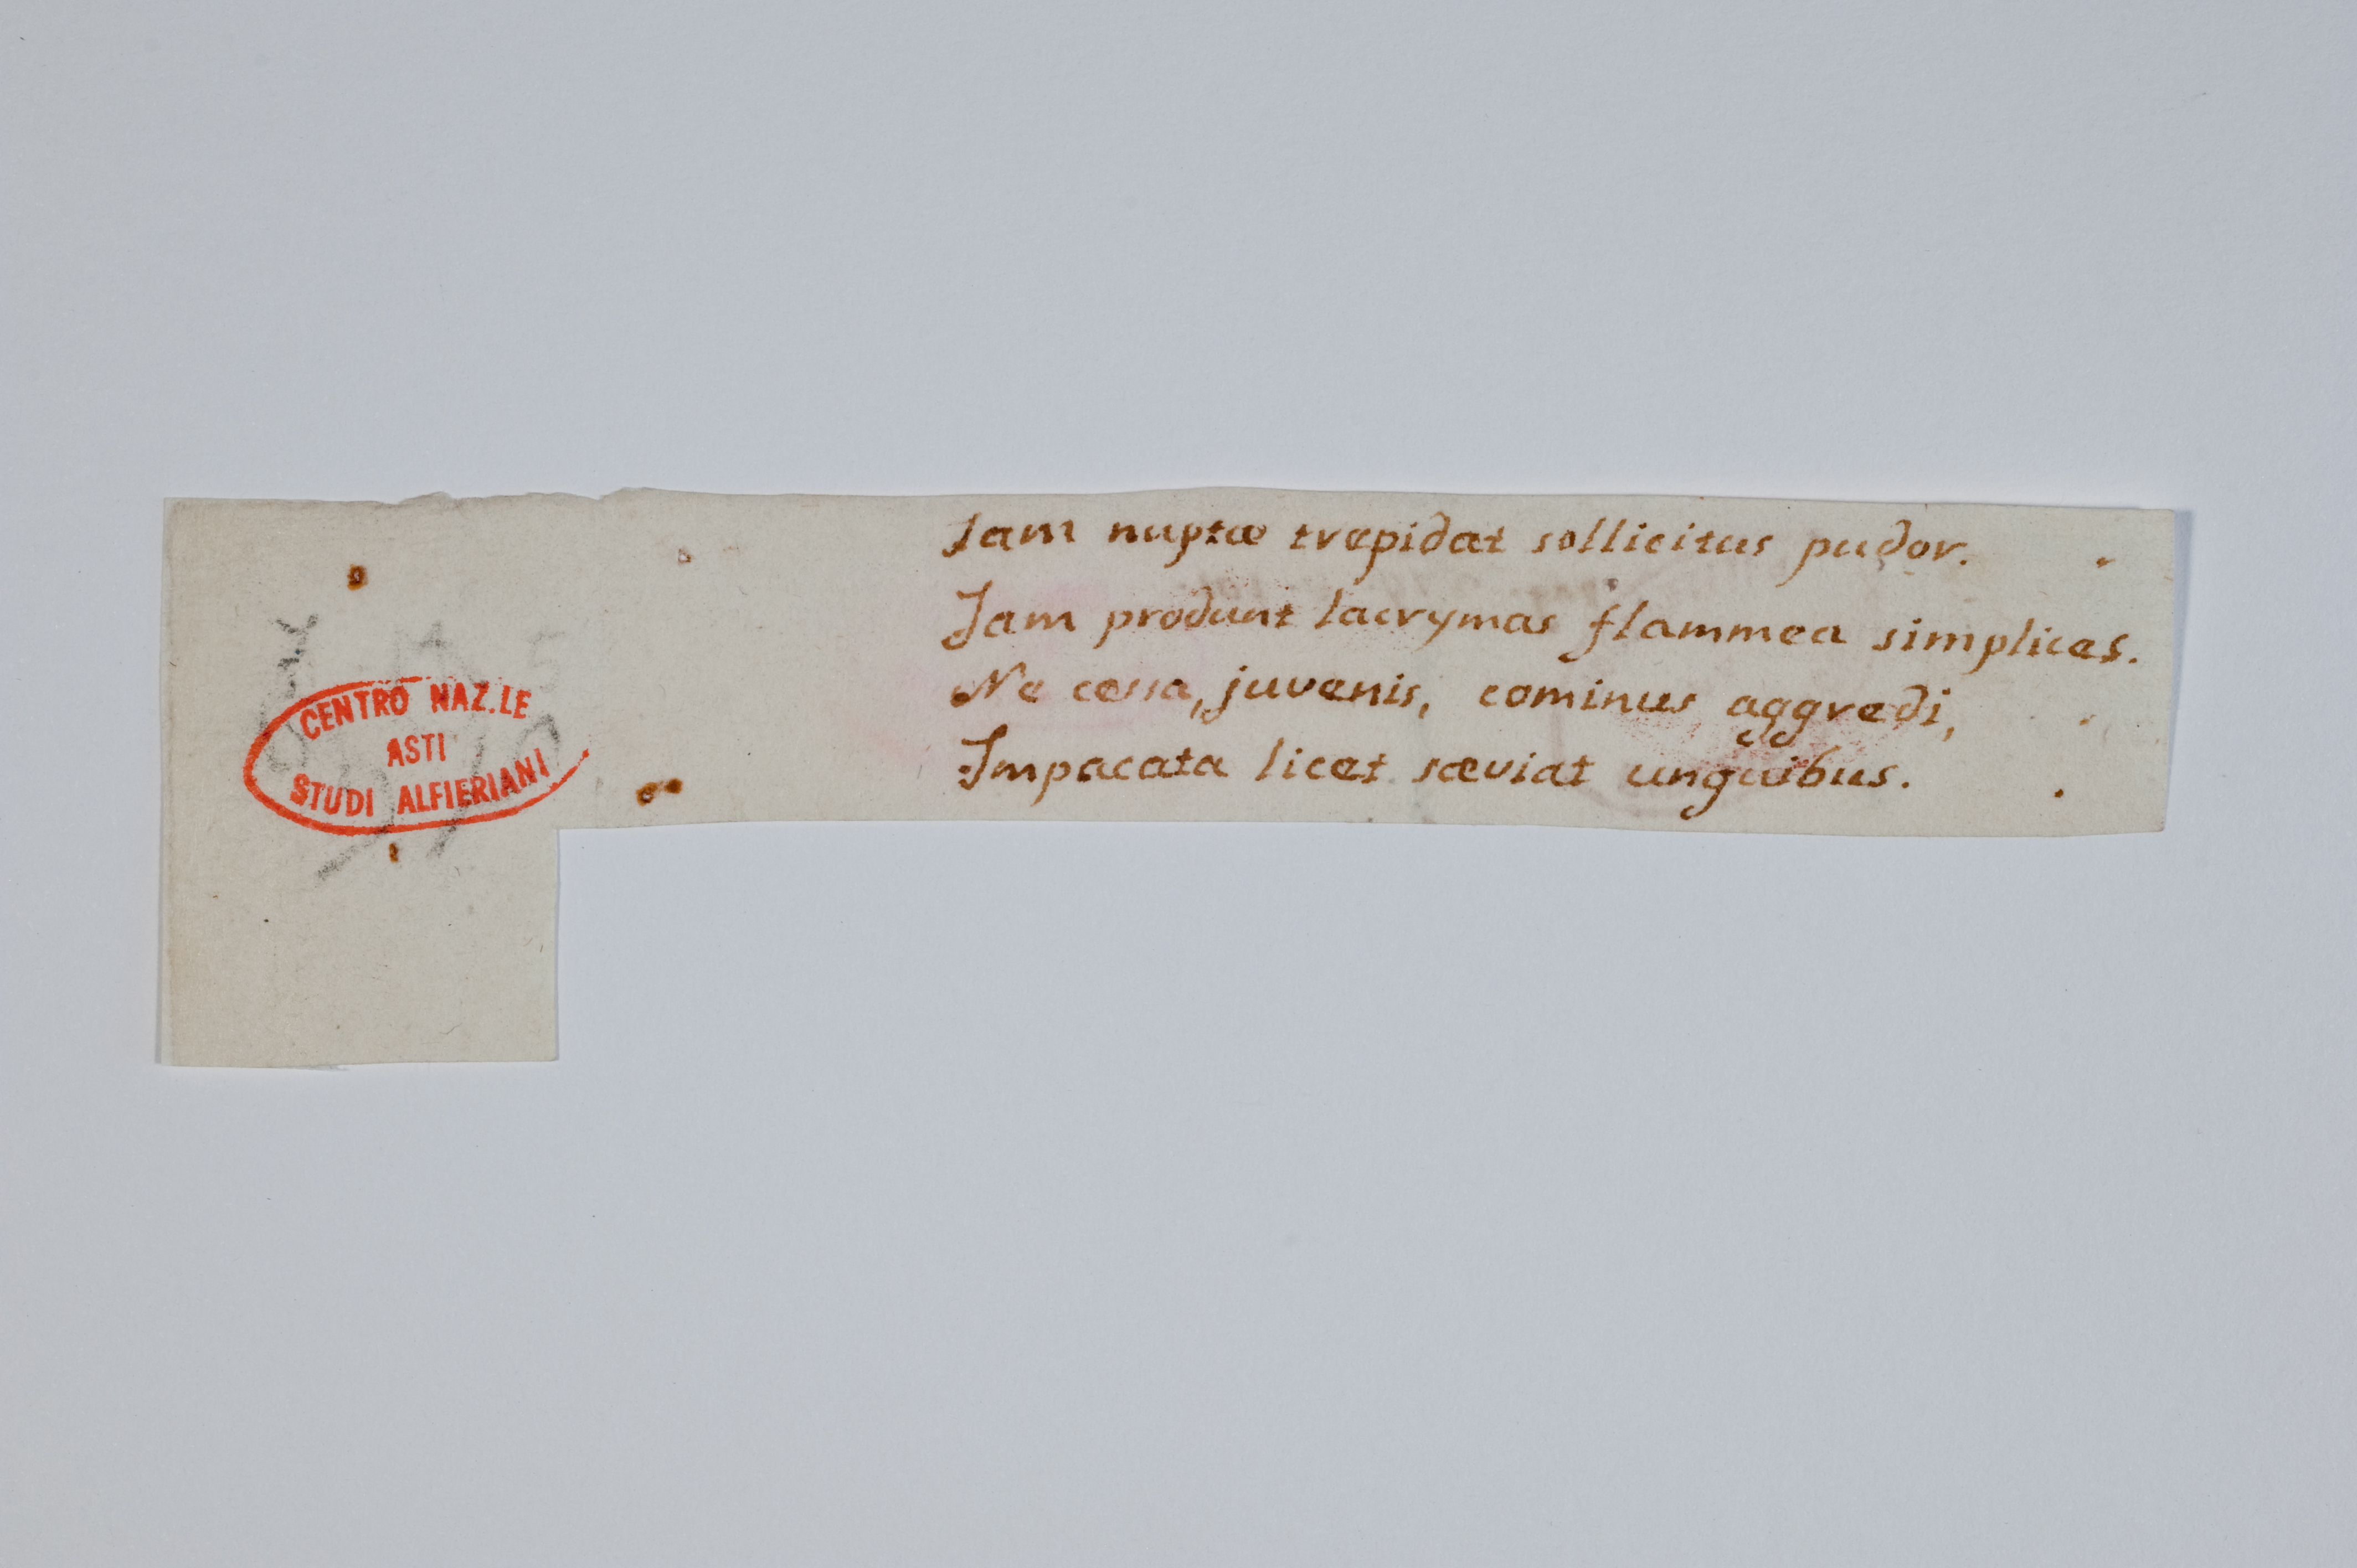 Jam nuptæ trepidat sollicitus pudor.
Jam produnt lacrymas flammea simplices.
Ne cessa, juvenis, cominus aggredi,
Impacata licet sæviat unguibus.
CENTRO NAZ.LE
ASTI
STUDI ALFIERIANI